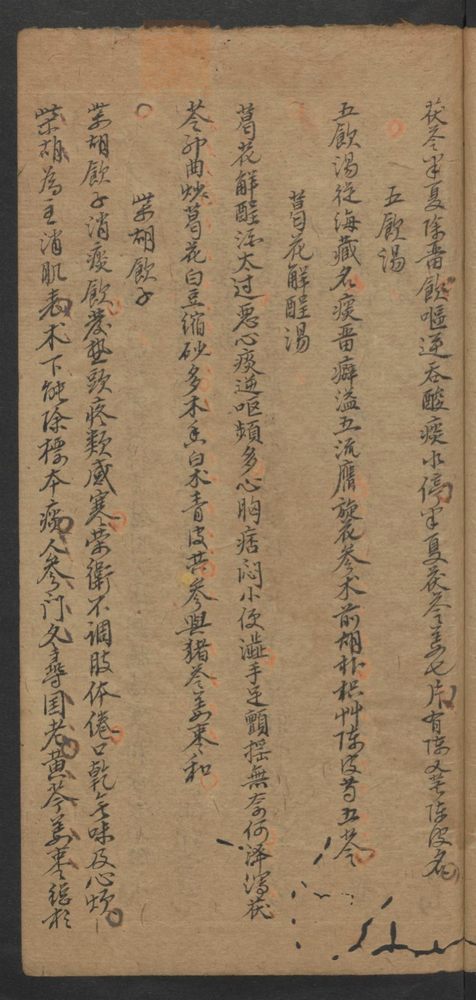 茯苓半夏除畜飲嘔逆吞酸痰水停半夏茯苓姜七片有陳又是陳皮名
五飲湯
五飲湯從海藏名痰畜癖溢五流膺旋花参术前胡朴枳艸陳皮芍五苓
葛花解酲湯
葛花解酲治太过惡心痰逆呕頻多心胸痞悶小便澁手足顫摇無奈何澤瀉茯
苓神曲炒葛花白豆缩砂多木香白术青皮共参與猪苓姜棗和
柴胡飲子
柴胡飲子消痰飲發熱頭疼類感寒荣衛不調肢体倦口乾無味及心煩
柴胡為主消肌表术下能除標本痰人参門久尋国老黄芩姜棗